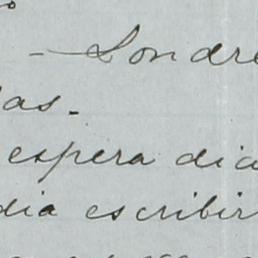 - Londre
das.
espera dici
dia escribir